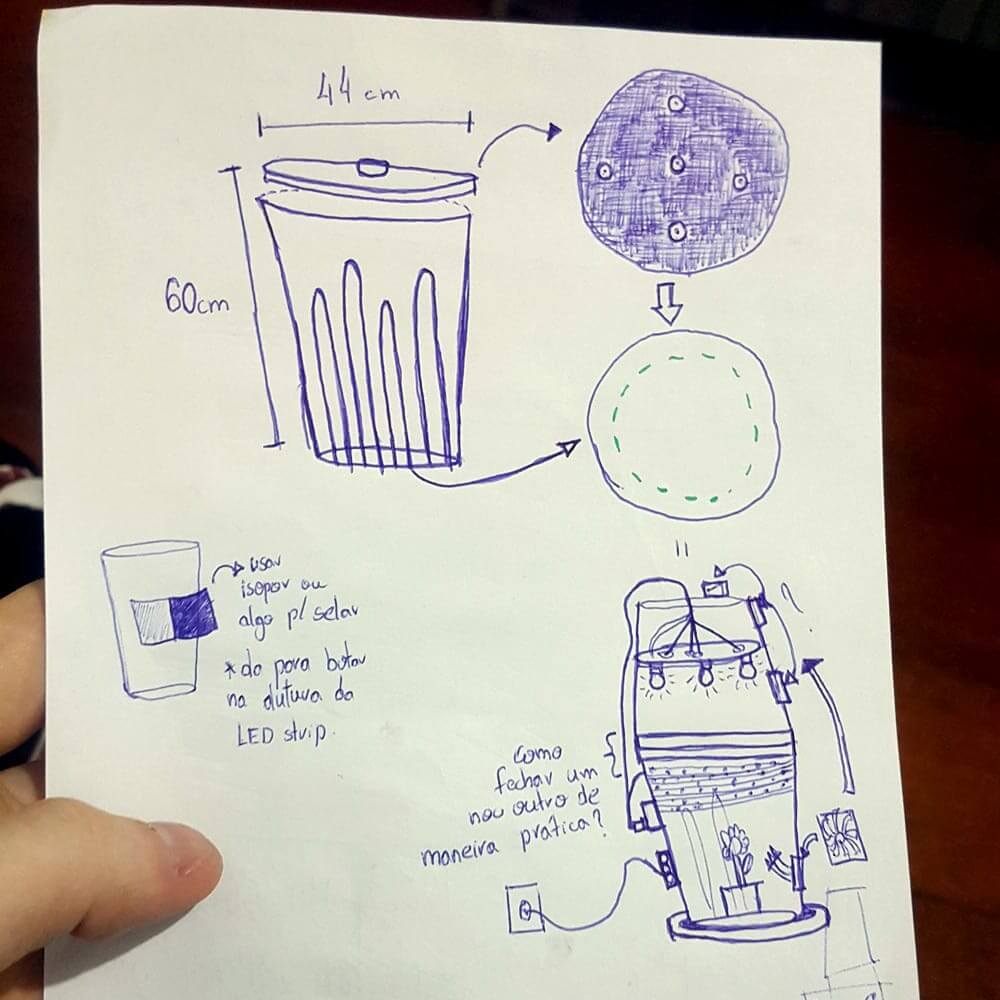 44 cm
60cm
usar
isopor ou
algo p/ selar
*da para botar
na altura da
LED strip.
como
fechar um
no outro de
maneira pratica?
?